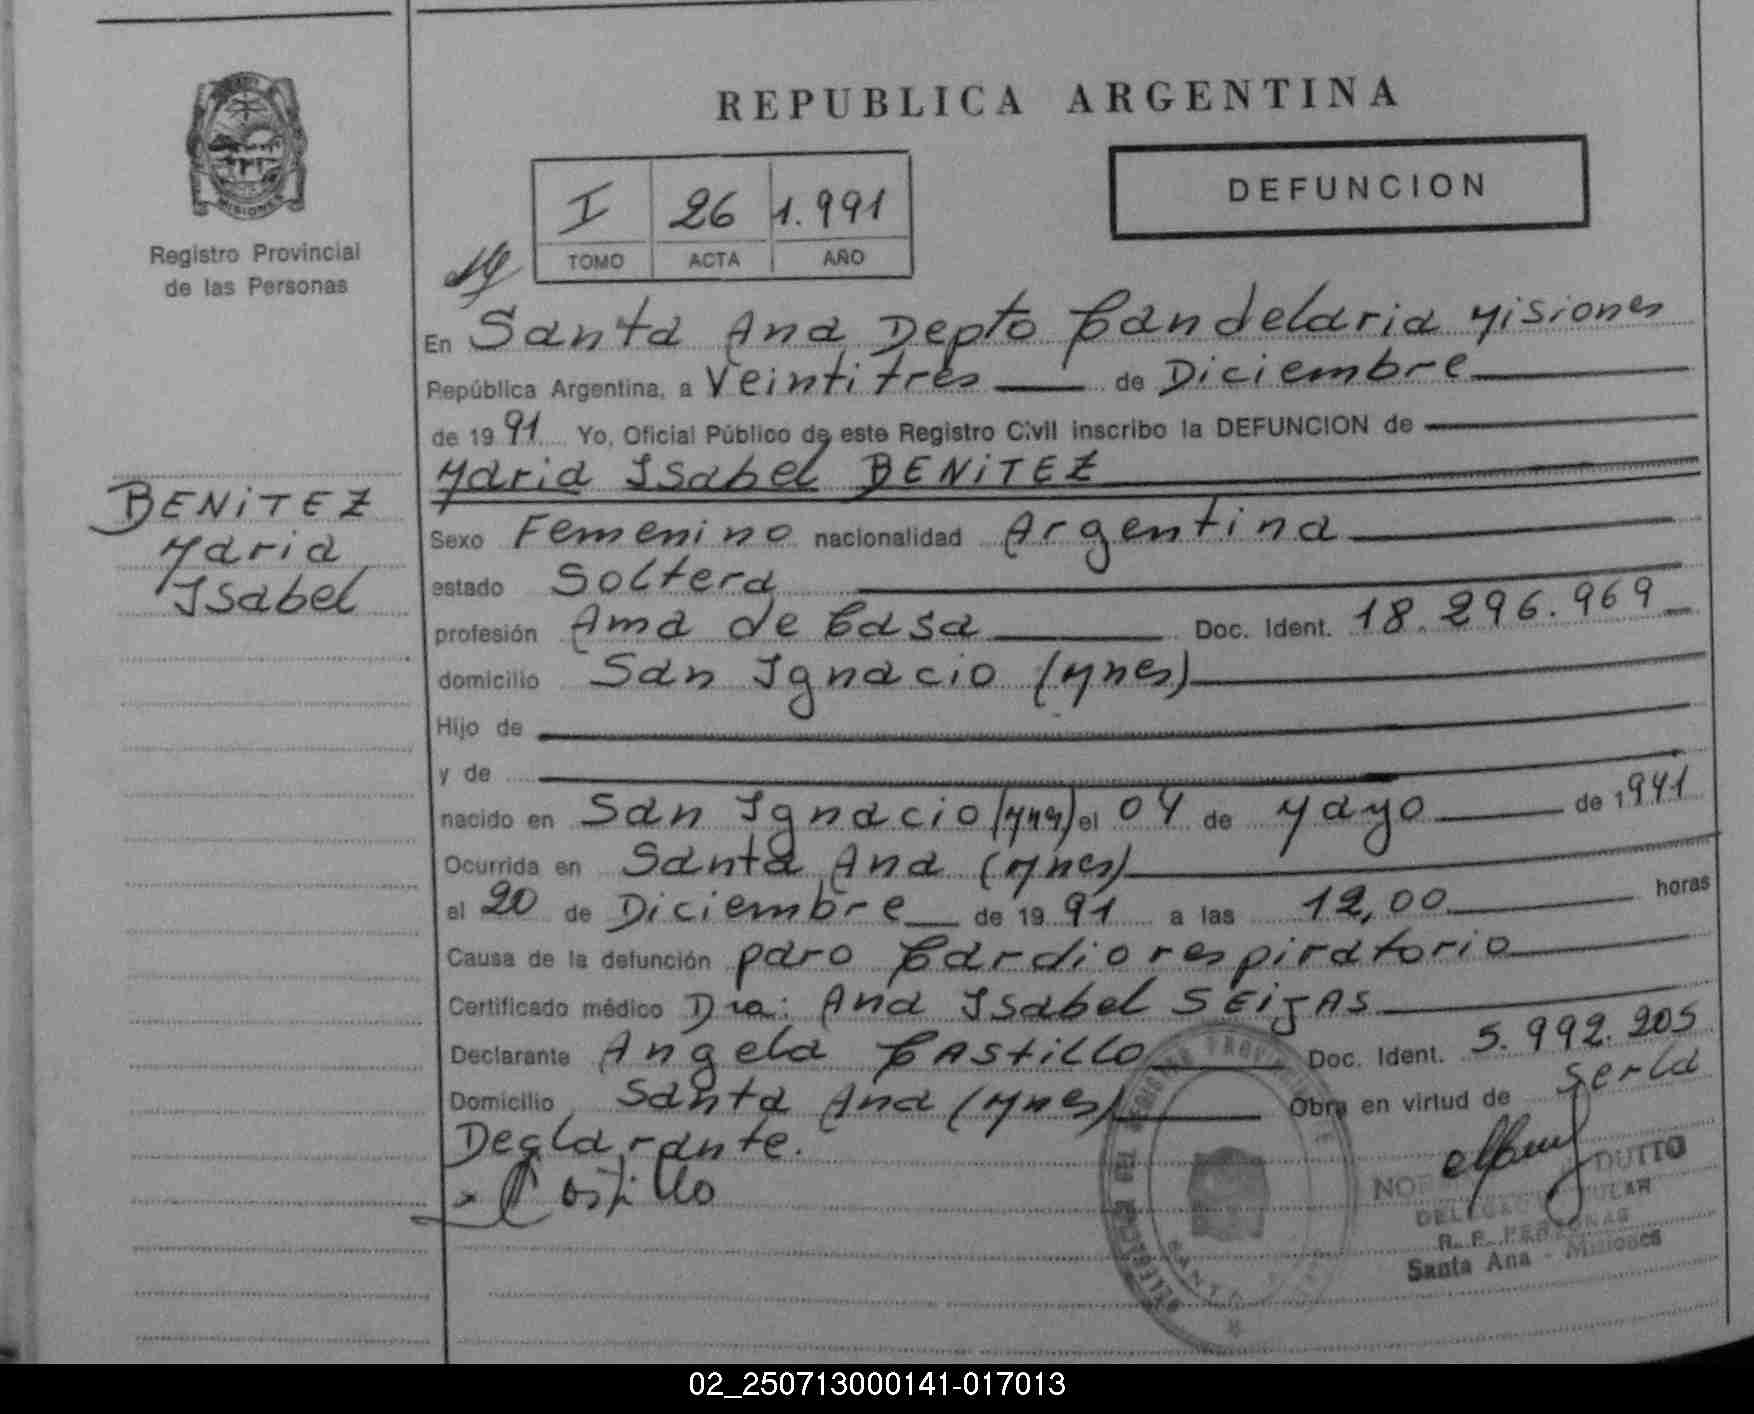 REPUBLICA ARGENTINA
MISIONES
Registro Provincial
de las Personas
I 26 1.991
TOMO ACTA AÑO
DEFUNCION
En Santa Ana Depto Candelaria Misiones
República Argentina, a Veintitres de Diciembre
de 1991 Yo, Oficial Público de este Registro Civil inscribo la DEFUNCION de
Maria Isabel BENITEZ
BENITEZ
Maria
Isabel
Sexo Femenino nacionalidad Argentina
estado Soltera
profesión Ama de Casa Doc. Ident. 18.296.969
domicilio San Ignacio (Mnes)
Hijo de
y de
nacido en San Ignacio (Mnes) el 04 de Mayo de 1941
Ocurrida en Santa Ana (Mnes)
el 20 de Diciembre de 1991 a las 12,00 horas
Causa de la defunción paro Cardiorespiratorio
Certificado médico Dra: Ana Isabel SEIJAS
Declarante Angela CAStiLLO Doc. Ident. 5.992.205
Domicilio Santa Ana (Mnes) Obra en virtud de Ser la
Declarante.
Castillo
DUTTO
R. P. PERSONAS
Santa Ana - Misiones
02_250713000141-017013